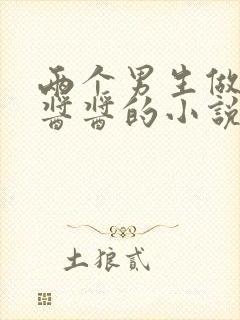 两个男生做
酱酱的小説
土狼貳